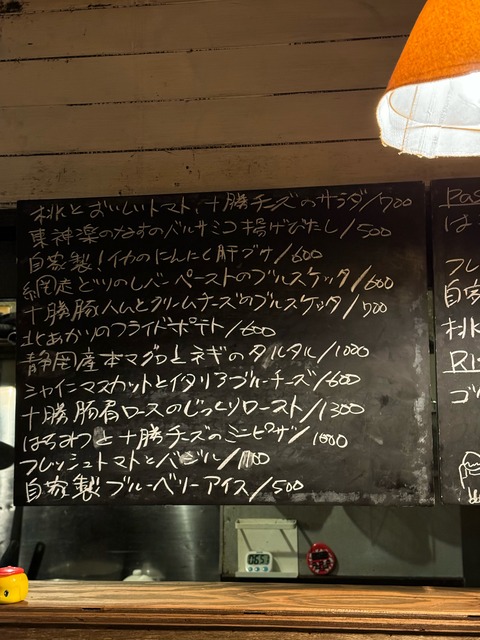 桃とおいしいトマト、十勝チーズのサラダ/700
東神楽のなすのバルサミコ揚げびたし/500
自家製!イカのにんにく肝ブサ/600
網走どりのレバーペーストのブルスケッタ/600
十勝豚ハムとクリームチーズのブルスケッタ/700
北あかりのフライドポテト/600
静岡産本マグロとネギのタルタル/1000
シャインマスカットとイタリアブルーチーズ/600
十勝豚肩ロースのじっくりロースト/1300
はちみつと十勝チーズのミニピザ/1000
フレッシュトマトとバジル/1100
自家製ブルーベリーアイス/500
Pas
は
フレ
自家
桃
RI
ゴ